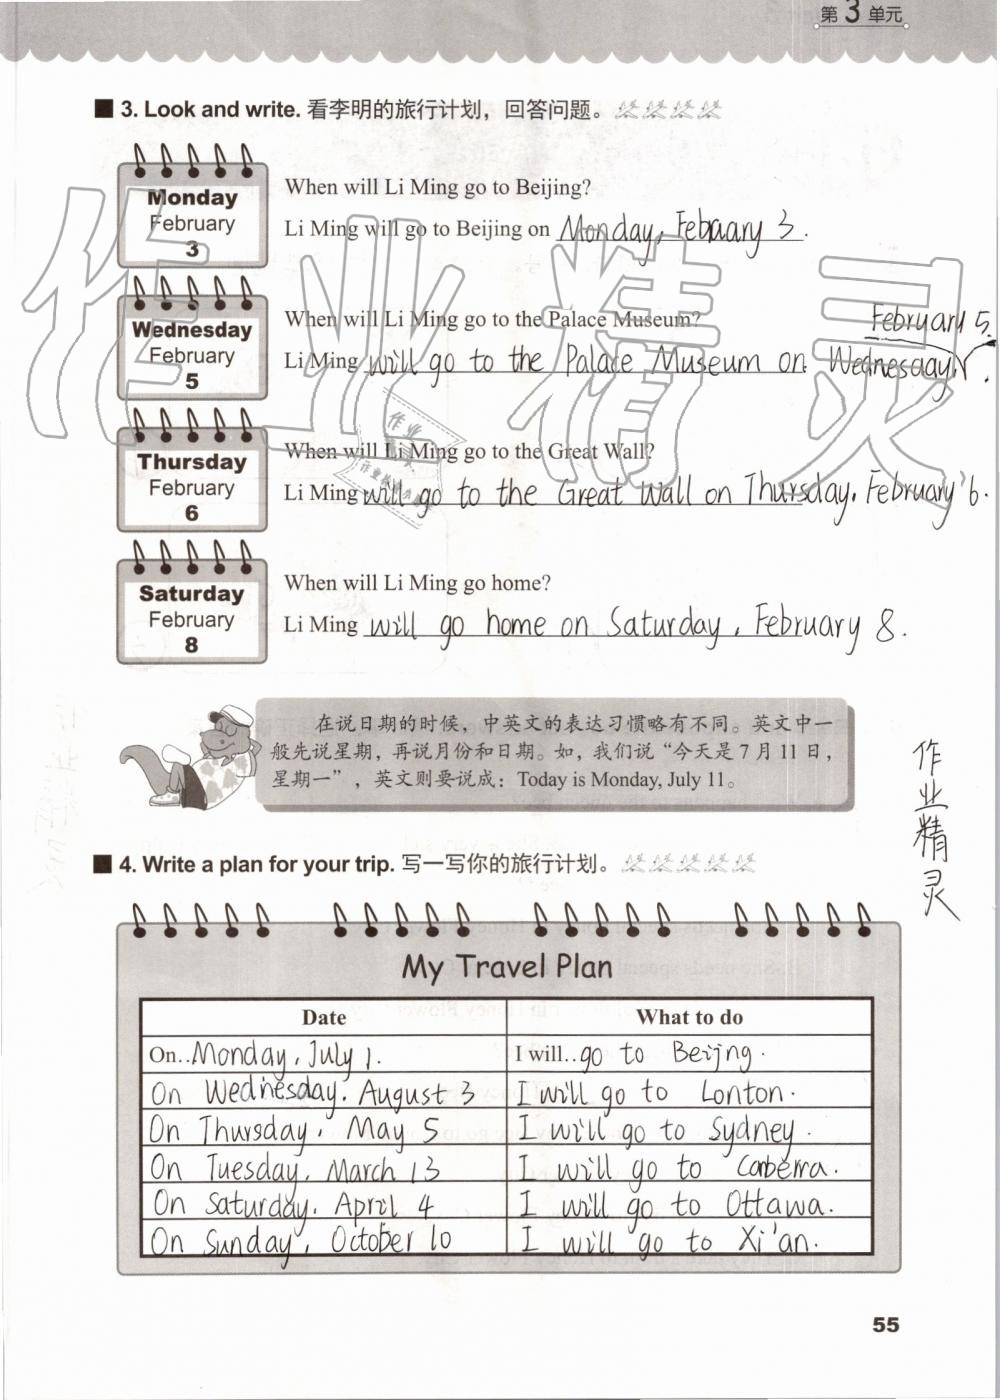 第3单元
■ 3. Look and write. 看李明的旅行计划，回答问题。
Monday
February
3
When will Li Ming go to Beijing?
Li Ming will go to Beijing on Monday, February 3.
Wednesday
February
5
When will Li Ming go to the Palace Museum?
February 5.
Li Ming will go to the Palace Museum on Wednesday.
Thursday
February
6
When will Li Ming go to the Great Wall?
Li Ming will go to the Great Wall on Thursday, February 6.
Saturday
February
8
When will Li Ming go home?
Li Ming will go home on Saturday, February 8.
在说日期的时候，中英文的表达习惯略有不同。英文中一
般先说星期，再说月份和日期。如，我们说“今天是7月11日，
星期一”，英文则要说成：Today is Monday, July 11。
作业精灵
■ 4. Write a plan for your trip. 写一写你的旅行计划。
My Travel Plan
Date What to do
On..Monday, July 1. I will..go to Beijng.
On Wednesday, August 3 I will go to Lonton.
On Thursday, May 5 I will go to Sydney.
On Tuesday, March 13 I will go to Canberra.
On Saturday, April 4 I will go to Ottawa.
On Sunday, October 10 I will go to Xi'an.
55
作业精灵
作业